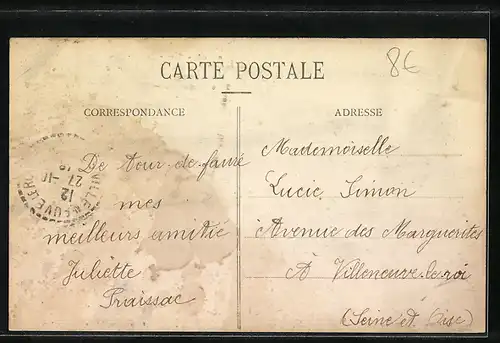 8€
CARTE POSTALE
CORRESPONDANCE
ADRESSE
De tour de fauré
mes
meilleurs amitié
Juliette
Praissac
Mademoiselle
Lucie Simon
Avenue des Marguerites
A Villeneuve-le-roi
(Seine et Oise)
12
27-10